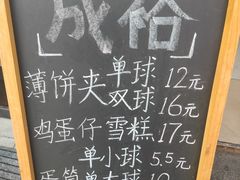 成裕
薄饼夹单球 12元
双球 16元
鸡蛋仔雪糕 17元
单小球 5.5元
蛋筒单大球